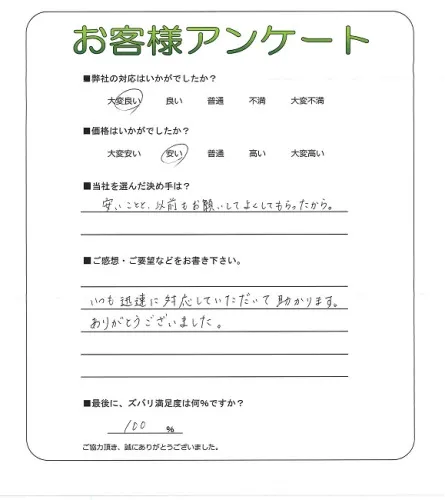 お客様アンケート
■弊社の対応はいかがでしたか？
大変良い 良い 普通 不満 大変不満
■価格はいかがでしたか？
大変安い 安い 普通 高い 大変高い
■当社を選んだ決め手は？
安いことと、以前もお願いしてよくしてもらったから。
■ご感想・ご要望などをお書き下さい。
いつも迅速に対応していただいて助かります。
ありがとうございました。
■最後に、ズバリ満足度は何%ですか？
100 %
ご協力頂き、誠にありがとうございました。